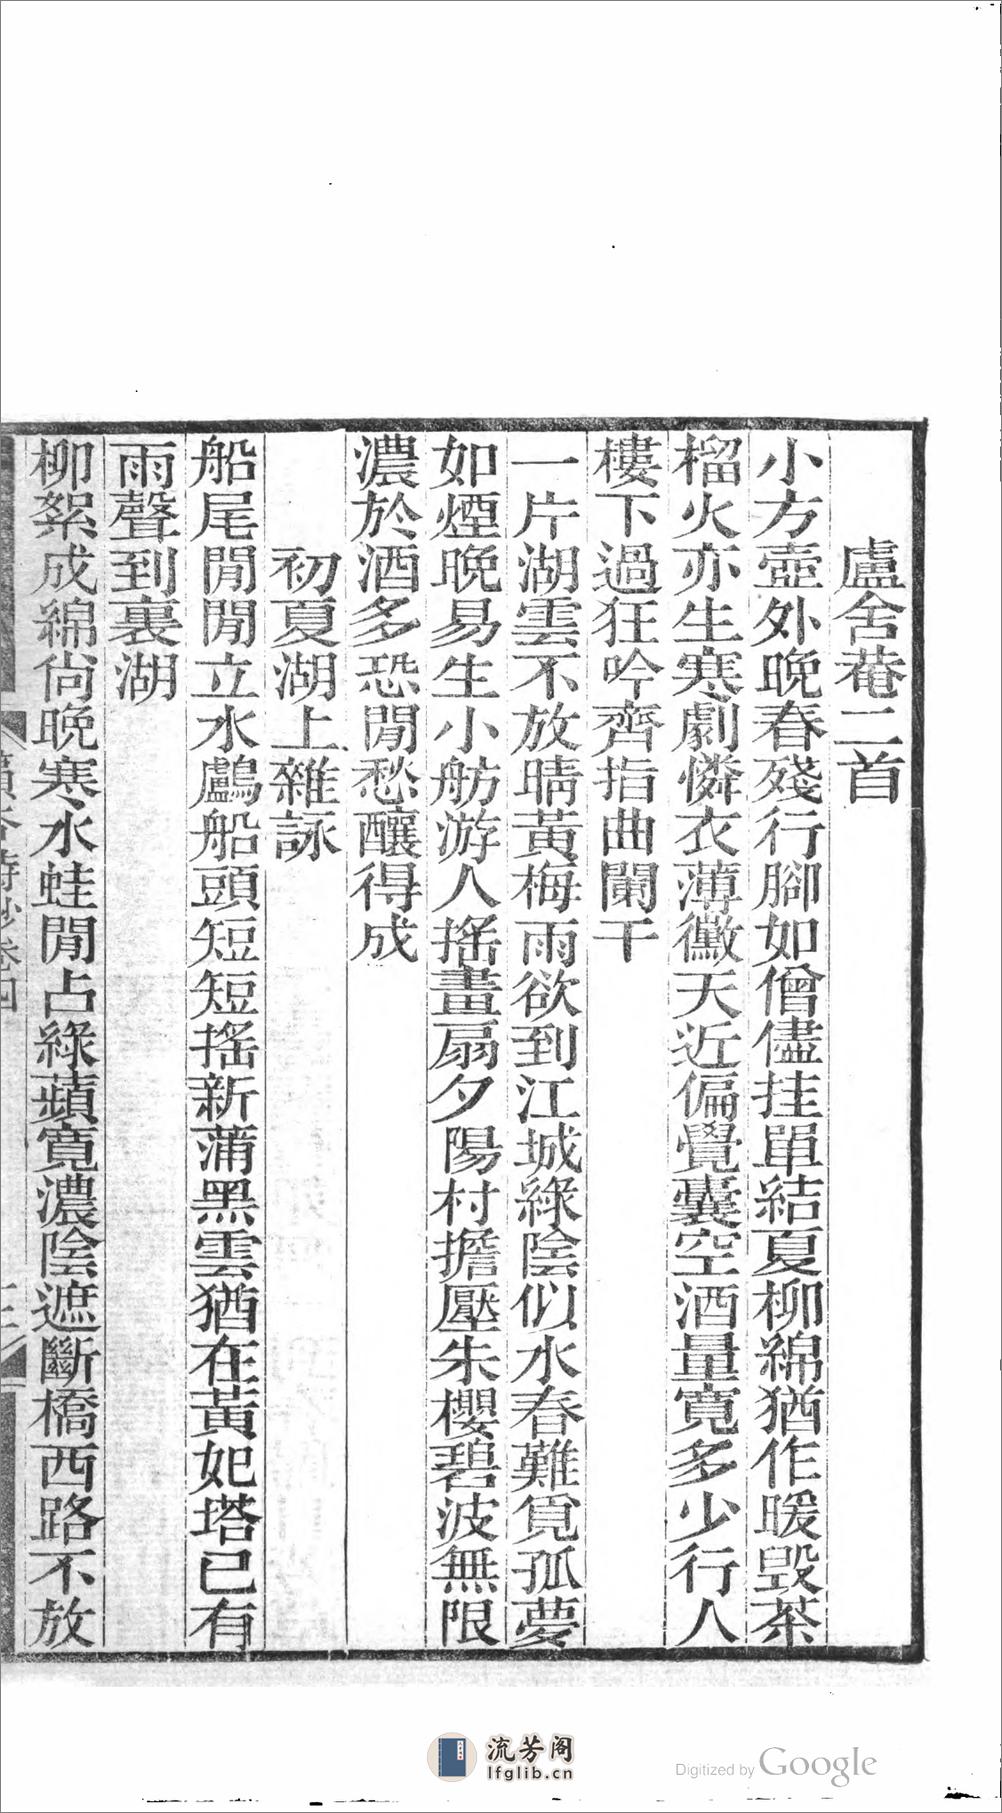 盧舍菴二首
小方壺外晚春殘行腳如僧儘挂單結夏柳綿猶作暖毀茶
榴火亦生寒劇憐衣薄黴天近偏覺囊空酒量寬多少行人
樓下過狂吟齊指曲闌干
一片湖雲不放晴黃梅雨欲到江城綠陰似水春難覓孤夢
如煙晚易生小舫游人搖畫扇夕陽村擔壓朱櫻碧波無限
濃於酒多恐閒愁釀得成
初夏湖上雜詠
船尾閒閒立水鸕船頭短短搖新蒲黑雲猶在黃妃塔已有
雨聲到裏湖
柳絮成綿尙晚寒水蛙閒占綠蘋寬濃陰遮斷橋西路不放
詩鈔卷四
流芳阁
lfglib.cn
Digitized by Google